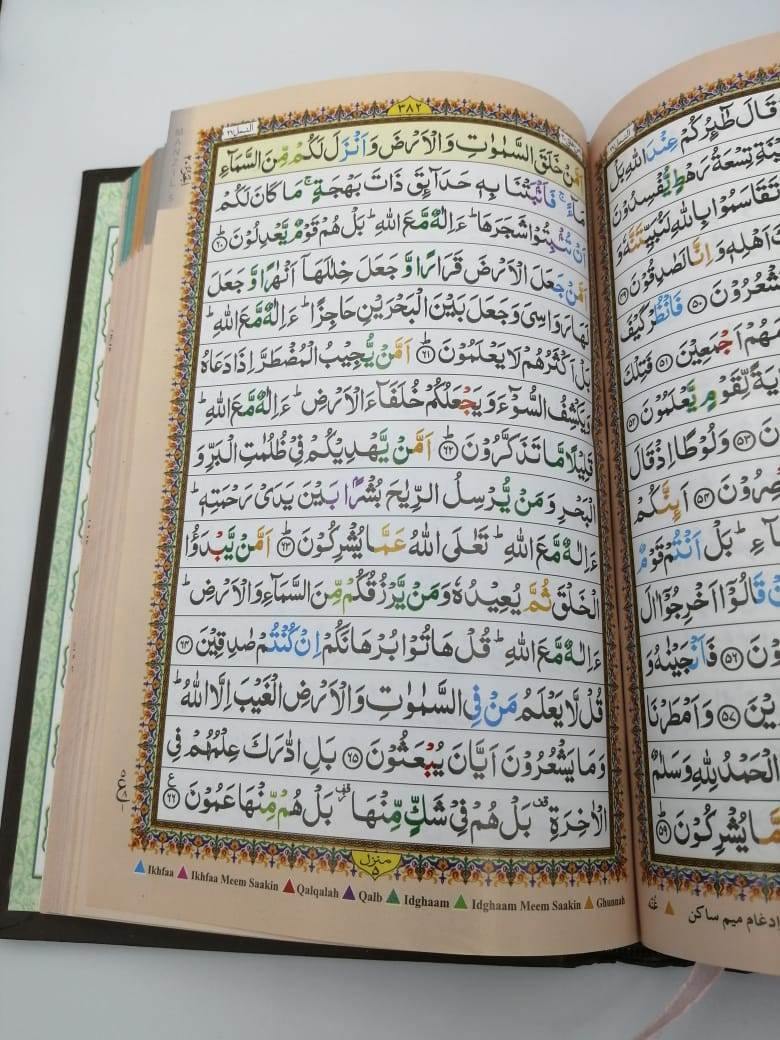 ٣٨٢
النمل ٢٧
اَمَّنْ خَلَقَ السَّمٰوٰتِ وَالْاَرْضَ وَاَنْزَلَ لَكُمْ مِّنَ السَّمَآءِ
مَآءً ۚ فَاَنْۢبَتْنَا بِهٖ حَدَآئِقَ ذَاتَ بَهْجَةٍ ۚ مَا كَانَ لَكُمْ
اَنْ تُنْۢبِتُوْا شَجَرَهَا ؕ ءَاِلٰهٌ مَّعَ اللّٰهِ ؕ بَلْ هُمْ قَوْمٌ يَّعْدِلُوْنَ ۶۰
اَمَّنْ جَعَلَ الْاَرْضَ قَرَارًا وَّ جَعَلَ خِلٰلَهَاۤ اَنْهٰرًا وَّ جَعَلَ
لَهَا رَوَاسِيَ وَجَعَلَ بَيْنَ الْبَحْرَيْنِ حَاجِزًا ؕ ءَاِلٰهٌ مَّعَ اللّٰهِ ؕ
بَلْ اَكْثَرُهُمْ لَا يَعْلَمُوْنَ ۶۱ اَمَّنْ يُّجِيْبُ الْمُضْطَرَّ اِذَا دَعَاهُ
وَيَكْشِفُ السُّوْٓءَ وَ يَجْعَلُكُمْ خُلَفَآءَ الْاَرْضِ ؕ ءَاِلٰهٌ مَّعَ اللّٰهِ ؕ
قَلِيْلًا مَّا تَذَكَّرُوْنَ ۶۲ اَمَّنْ يَّهْدِيْكُمْ فِيْ ظُلُمٰتِ الْبَرِّ وَ
الْبَحْرِ وَ مَنْ يُّرْسِلُ الرِّيٰحَ بُشْرًۢا بَيْنَ يَدَيْ رَحْمَتِهٖ ؕ
ءَاِلٰهٌ مَّعَ اللّٰهِ ؕ تَعٰلَى اللّٰهُ عَمَّا يُشْرِكُوْنَ ۶۳ اَمَّنْ يَّبْدَؤُا
الْخَلْقَ ثُمَّ يُعِيْدُهٗ وَ مَنْ يَّرْزُقُكُمْ مِّنَ السَّمَآءِ وَالْاَرْضِ ؕ
ءَاِلٰهٌ مَّعَ اللّٰهِ ؕ قُلْ هَاتُوْا بُرْهَانَكُمْ اِنْ كُنْتُمْ صٰدِقِيْنَ ۶۴
قُلْ لَّا يَعْلَمُ مَنْ فِي السَّمٰوٰتِ وَالْاَرْضِ الْغَيْبَ اِلَّا اللّٰهُ ؕ
وَ مَا يَشْعُرُوْنَ اَيَّانَ يُبْعَثُوْنَ ۶۵ بَلِ ادّٰرَكَ عِلْمُهُمْ فِي
الْاٰخِرَةِ ۫ بَلْ هُمْ فِيْ شَكٍّ مِّنْهَا ۫ بَلْ هُمْ مِّنْهَا عَمُوْنَ ۶۶
منزل ۵
Ikhfaa Ikhfaa Meem Saakin Qalqalah Qalb Idghaam Idghaam Meem Saakin Ghunnah
قَالَ طٰٓئِرُكُمْ عِنْدَ اللّٰهِ بَلْ
تِسْعَةُ رَهْطٍ يُّفْسِدُوْنَ
تَقَاسَمُوْا بِاللّٰهِ لَنُبَيِّتَنَّهٗ وَ
اَهْلِهٖ وَ اِنَّا لَصٰدِقُوْنَ ۴۹
يَشْعُرُوْنَ ۵۰ فَانْظُرْ كَيْفَ
اَجْمَعِيْنَ ۵۱ فَتِلْكَ
لِّقَوْمٍ يَّعْلَمُوْنَ ۵۲
۵۳ وَلُوْطًا اِذْ قَالَ
۵۴ اَئِنَّكُمْ
بَلْ اَنْتُمْ قَوْمٌ
قَالُوْۤا اَخْرِجُوْۤا اٰلَ
۵۶ فَاَنْجَيْنٰهُ وَ
۵۷ وَ اَمْطَرْنَا
الْحَمْدُ لِلّٰهِ وَ سَلٰمٌ
يُشْرِكُوْنَ ۵۹
غُنّه
ادغام میم ساکن